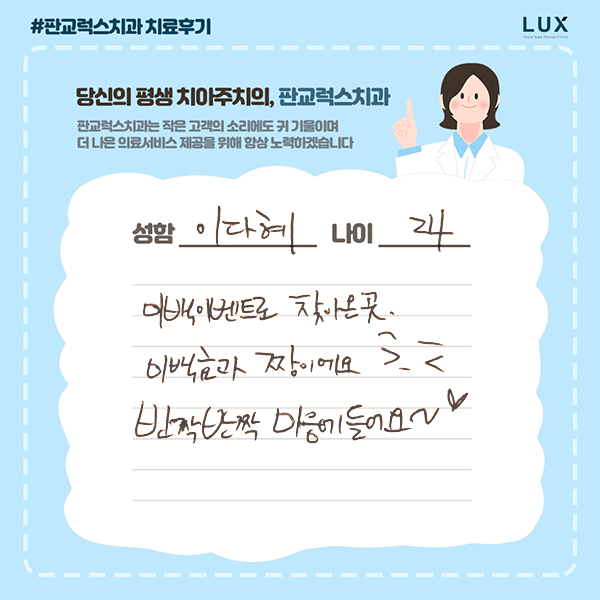 #판교럭스치과 치료후기
LUX
Seoul Lux Dental Clinic
당신의 평생 치아주치의, 판교럭스치과
판교럭스치과는 작은 고객의 소리에도 귀 기울이며
더 나은 의료서비스 제공을 위해 항상 노력하겠습니다
성함 이다혜 나이 24
미백이벤트로 찾아온곳.
미백효과 짱이에요 >_<
반짝반짝 마음에들어요~♥